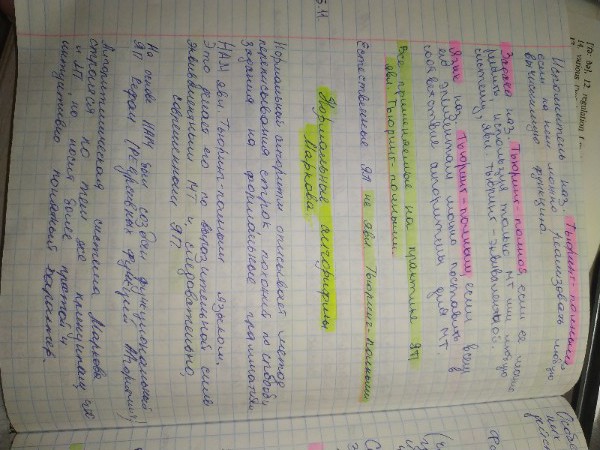 [rə: bə], 12. regulation
14. various
Исполнитель наз. Тьюринг-полным,
если на нем можно реализовать любую
вычислимую функцию.
Задача наз. Тьюринг-полной, если её можно
решить, используя только МТ или любую
систему, явл. Тьюринг-эквивалентной.
Язык наз. Тьюринг-полным, если всем
его элементам можно поставить в
соответствие алгоритмы для МТ.
Все применяемые на практике ЯП
явл. Тьюринг-полными.
Естественные ЯП не явл Тьюринг-полными
5.11.
Нормальные алгорифмы
Маркова.
Нормальный алгоритм описывает метод
переписывания строк, похожий по способу
задания на формальные грамматики
НАМ явл. Тьюринг-полным языком.
Это делает его по выразительной силе
эквивалентным МТ и, следовательно,
современным ЯП.
На основе НАМ был создан функциональный
ЯП Рефал (РЕкурсивных Функций АЛгоритмич
Алгоритмическая система Маркова
строится по тем же принципам, что
и МП, но носит более простой и
интуитивно понятный характер.
Особе
них
дейст